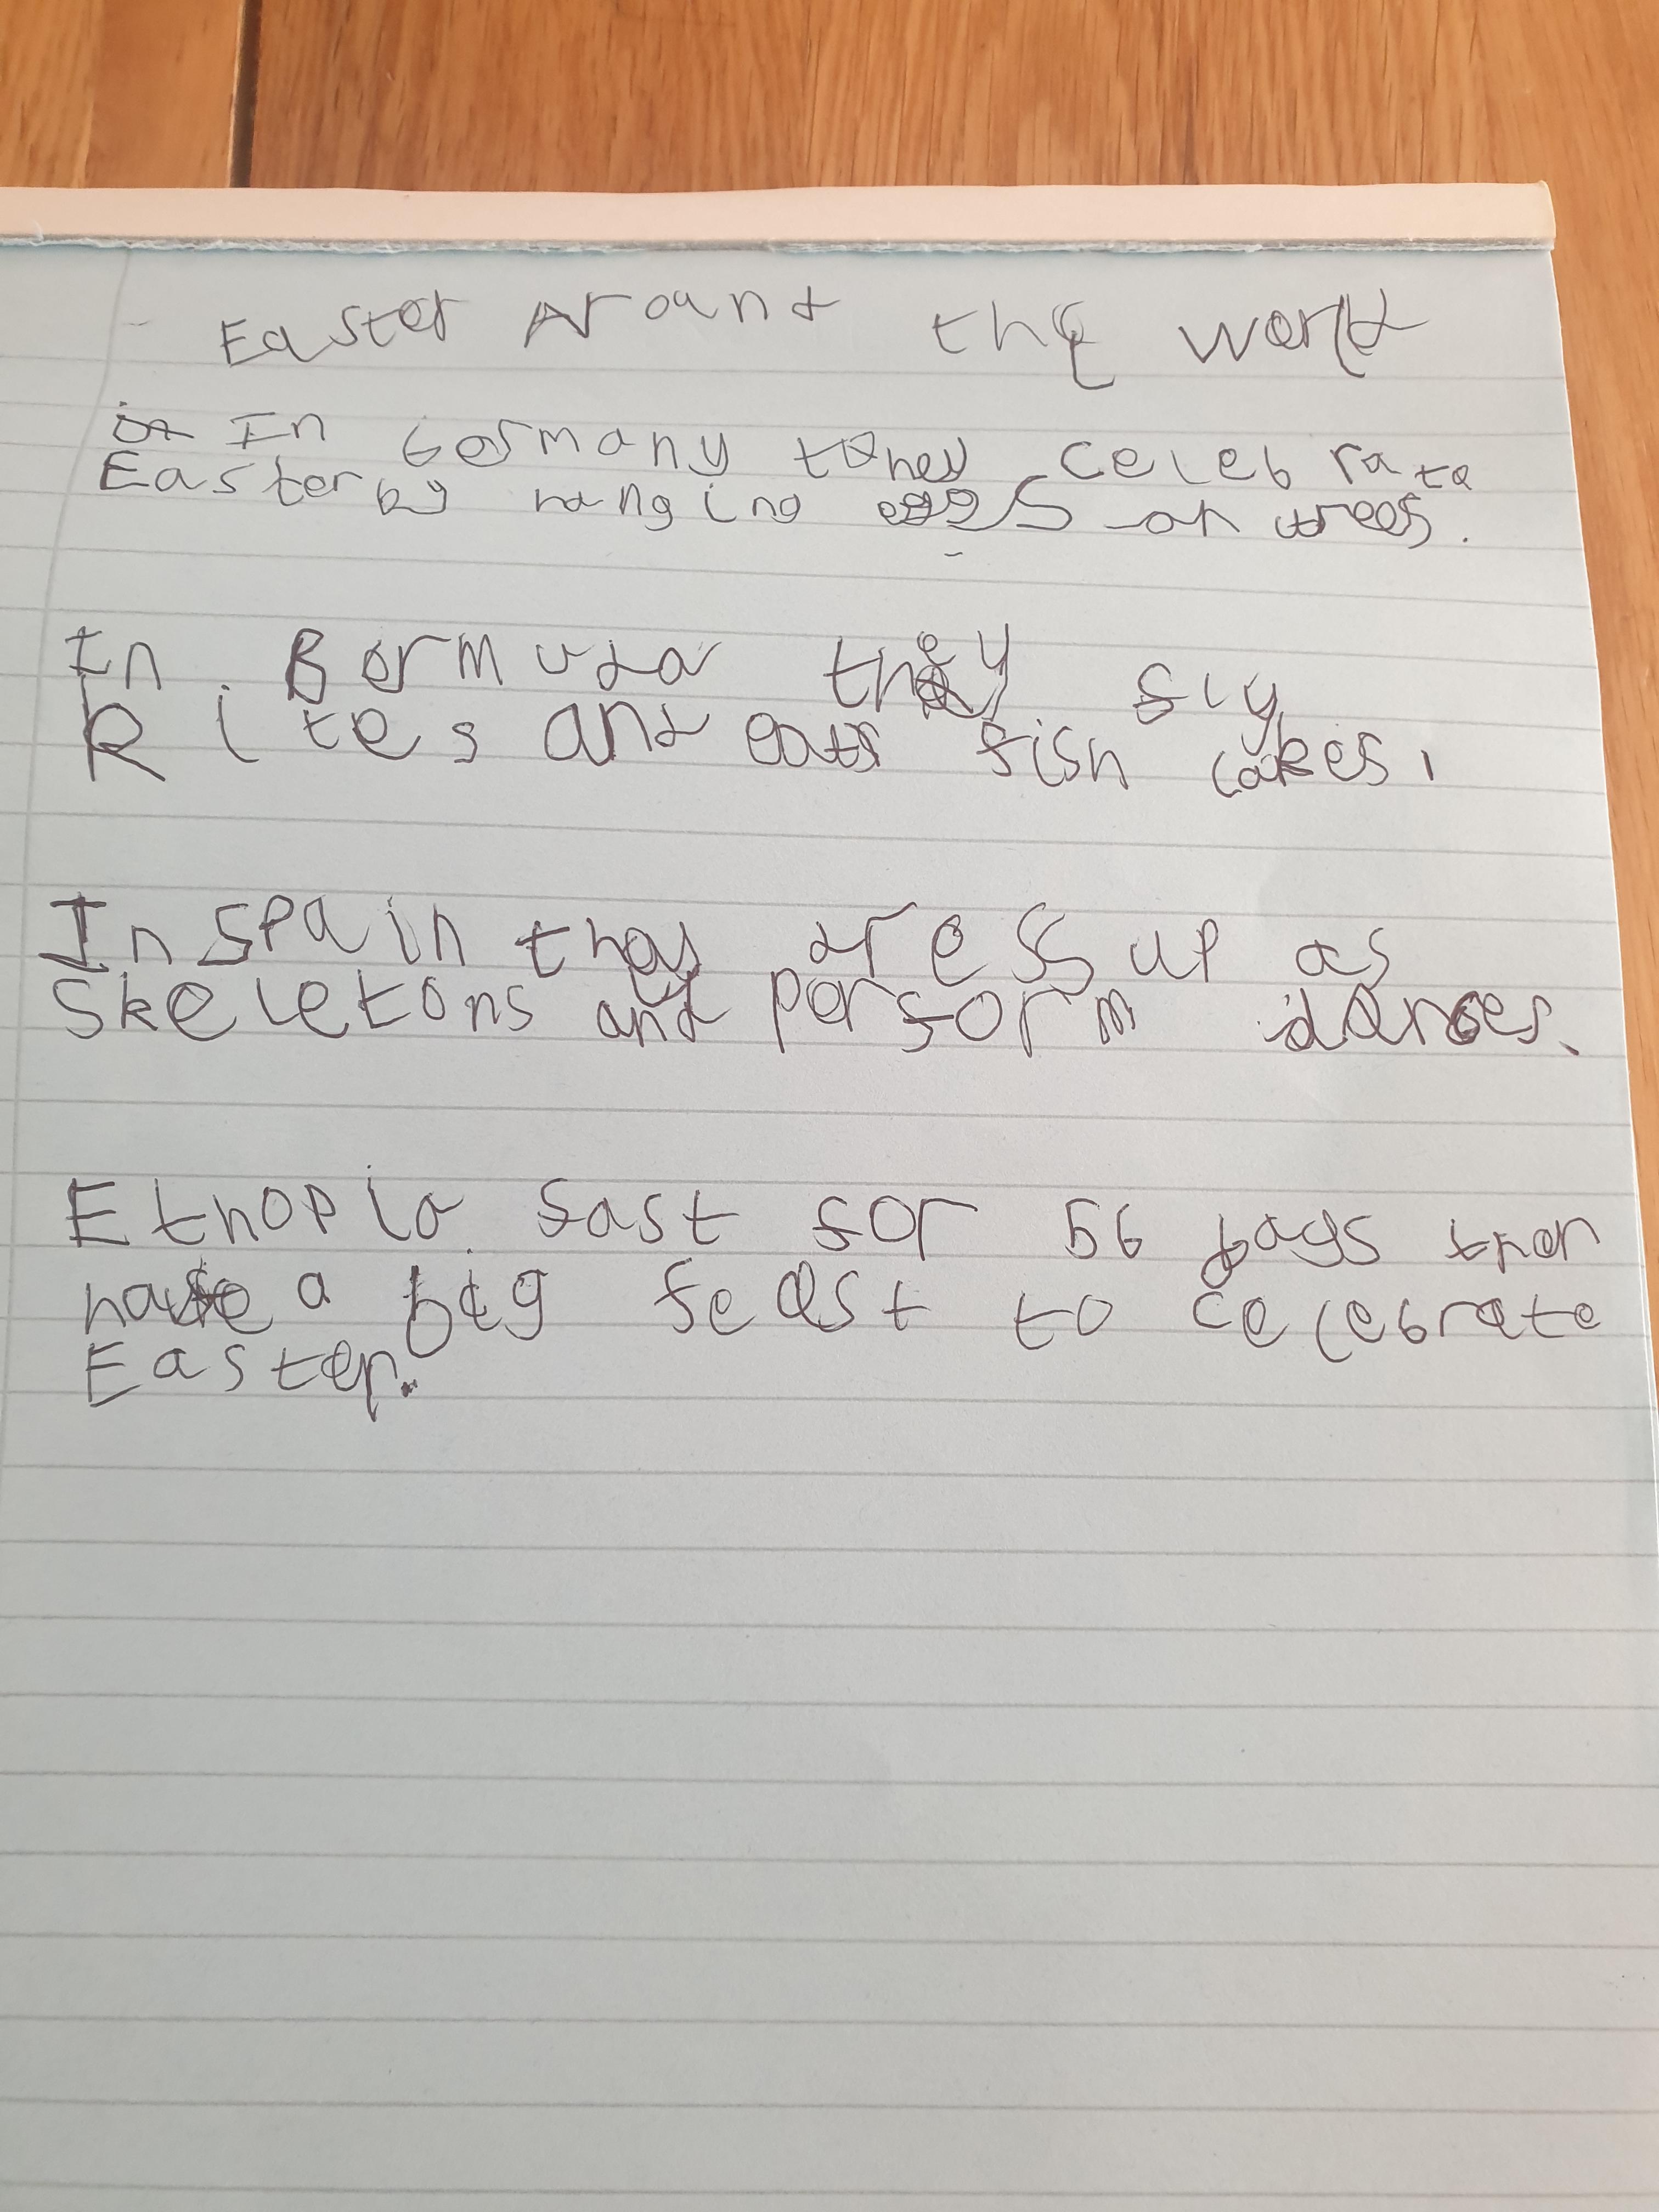 Easter Around the world
in In Germany they celebrate
Easter by hanging eggs on trees.
In Bermuda they fly
Kites and eat fish cakes.
In Spain they dress up as
Skeletons and perform dances.
Ethopia fast for 56 days then
have a big feast to celebrate
Easter.